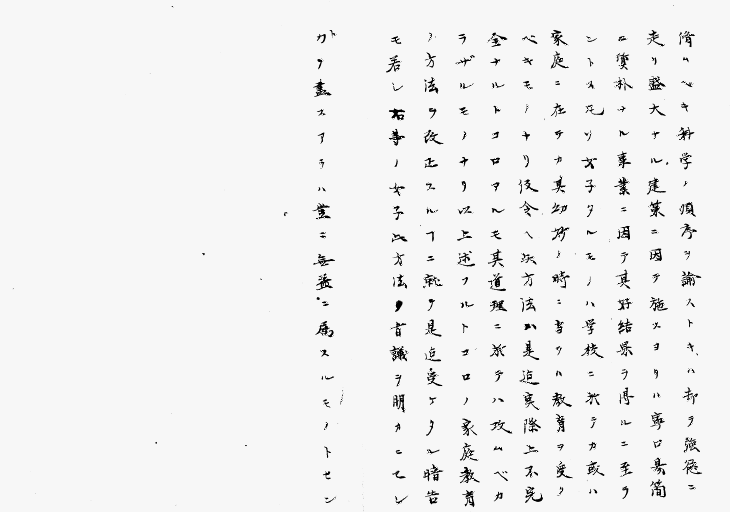 脩ムベキ科学ノ順序ヲ論ストキハ却テ強㢠ニ
走リ盛大ナル建築ニ因テ施スヨリハ寧ロ易簡
ニ質朴ナル事業ニ因テ其好結果ヲ得ルニ至ラ
ントス凡ソ女子タルモノハ学校ニ於テカ或ハ
家庭ニ在テカ其幼好ノ時ニ方リ教育ヲ受ク
ベキモノナリ仮令ヘ此方法カ是迠実際上不完
全ナルトコロアルモ其道理ニ於テハ攻ムベカ
ラザルモノナリ以上述フルトコロノ家庭教育
ノ方法ヲ改正スルヿニ就テ是迠受ケタル暗告
モ若シ右等ノ女子此方法ノ旨議ヲ明カニセシ
ガタ盡スアラハ蓋ニ無益ニ属スルモノトセン